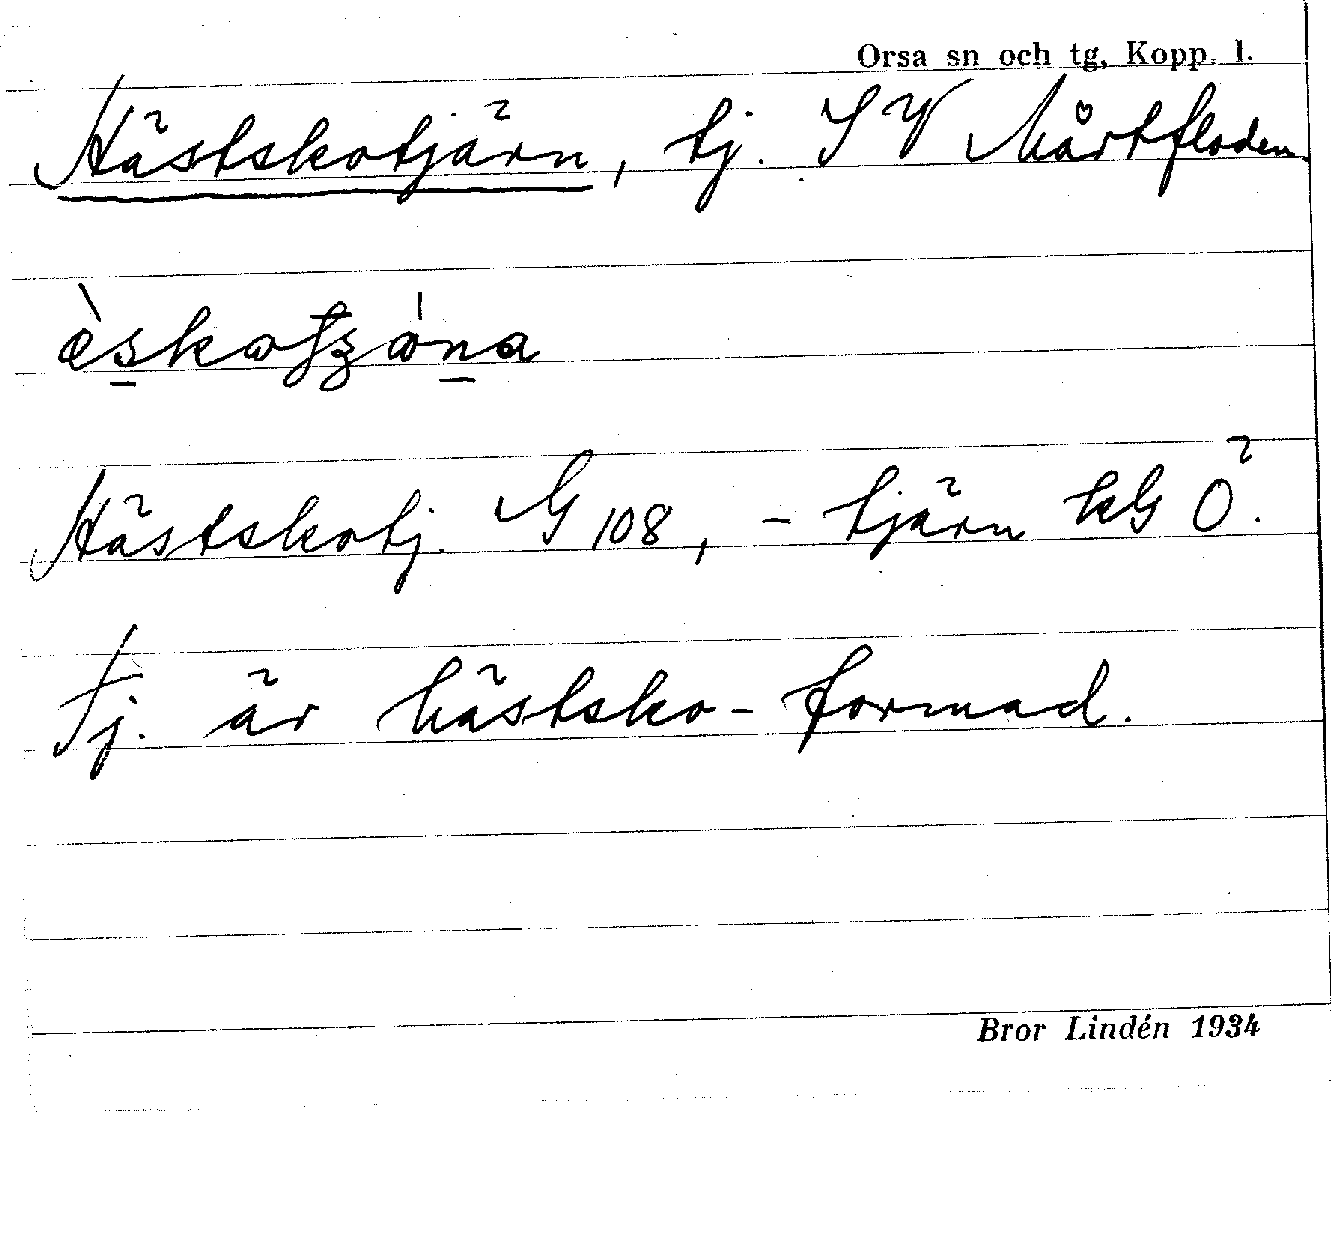 Orsa sn och tg, Kopp. l.
Hästskotjärn, tj. SV Mårtfloden.
Hästskotj. G 108, - tjärn kG Ö.
Tj. är hästsko-formad.
Bror Lindén 1934